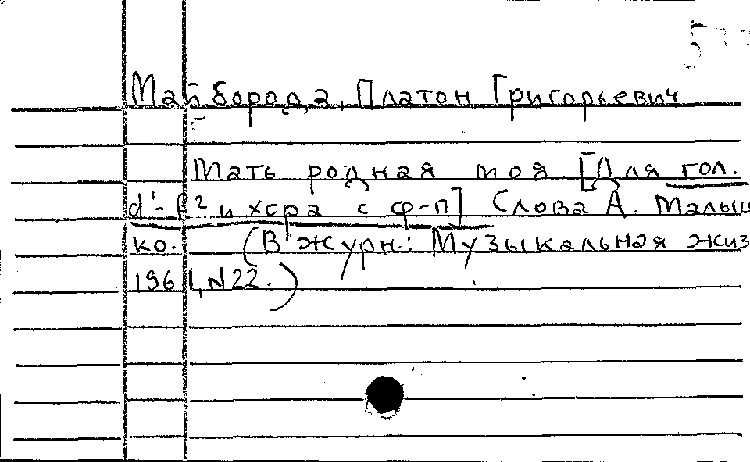 Майборода, Платон Григорьевич
Мать родная моя [Для гол.
d'-f² и хора с ф-п] Слова А. Малыш
ко. (В журн.: Музыкальная жиз
1961, N22.)